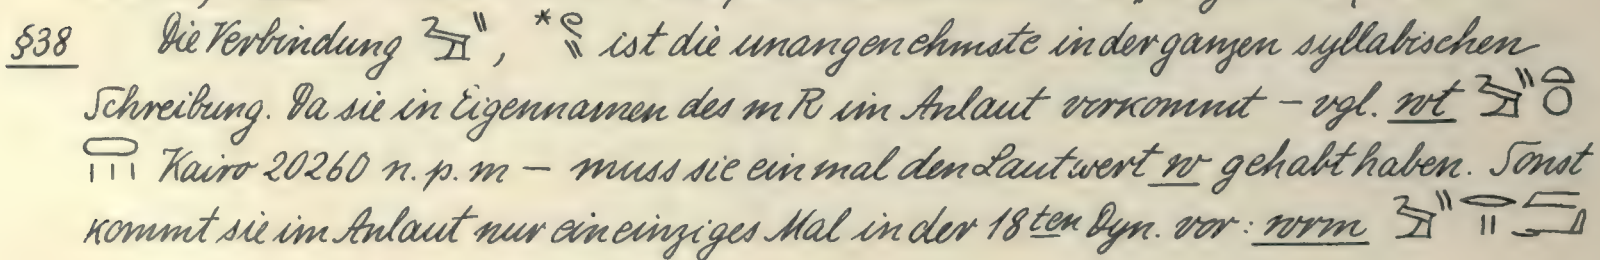 §38 Die Verbindung , * ist die unangenehmste in der ganzen syllabischen
Schreibung. Da sie in Eigennamen des mR im Anlaut vorkommt – vgl. wt
Kairo 20260 n. p. m – muss sie einmal den Lautwert w gehabt haben. Sonst
kommt sie im Anlaut nur ein einziges Mal in der 18ten Dyn. vor: wrm